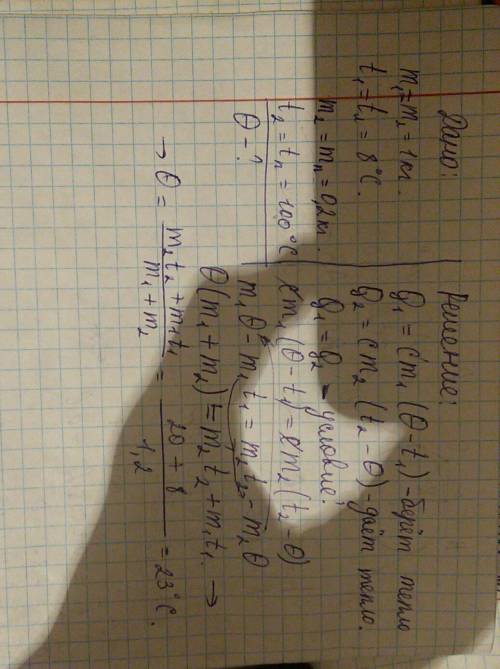 Дано:
m₁ = m₂ = 1 кг.
t₁ = t₂ = 8°C.
m₂ = mₙ = 0,2 кг.
t₂ = tₙ = 100°C
θ - ?
Решение:
Q₁ = cm₁(θ - t₁) - берёт тепло
Q₂ = cm₂(t₂ - θ) - даёт тепло.
Q₁ = Q₂ - условие!
cm₁(θ - t₁) = cm₂(t₂ - θ)
m₁θ - m₁t₁ = m₂t₂ - m₂θ
θ(m₁ + m₂) = m₂t₂ + m₁t₁. →
→ θ = (m₂t₂ + m₁t₁)/(m₁ + m₂) = (20 + 8)/1,2 = 23°C.